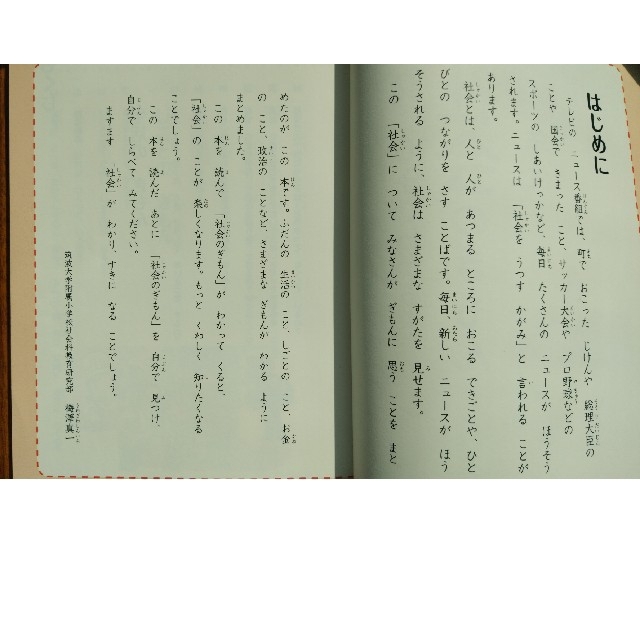 はじめに
テレビの ニュース番組では、町で おこった じけんや 総理大臣の
ことや 国会で きまった こと、サッカー大会や プロ野球などの
スポーツの しあいけっかなど、毎日 たくさんの ニュースが ほうそう
されます。ニュースは 「社会を うつす かがみ」と 言われる ことが
あります。
社会とは、人と 人が あつまる ところに おこる できごとや、ひと
びとの つながりを さす ことばです。毎日、新しい ニュースが ほう
そうされる ように、社会は さまざまな すがたを 見せます。
この 「社会」に ついて みなさんが ぎもんに 思う ことを まと
めたのが この 本です。ふだんの 生活の こと、しごとの こと、お金
の こと、政治の ことなど、さまざまな ぎもんが わかる ように
まとめました。
この 本を 読んで 「社会のぎもん」が わかって くると、
「社会」の ことが 楽しくなります。もっと くわしく 知りたくなる
ことでしょう。
この 本を 読んだ あとに 「社会のぎもん」を 自分で 見つけ、
自分で しらべて みてください。
ますます 「社会」が わかり、すきに なる ことでしょう。
筑波大学附属小学校社会科教育研究部 梅澤真一